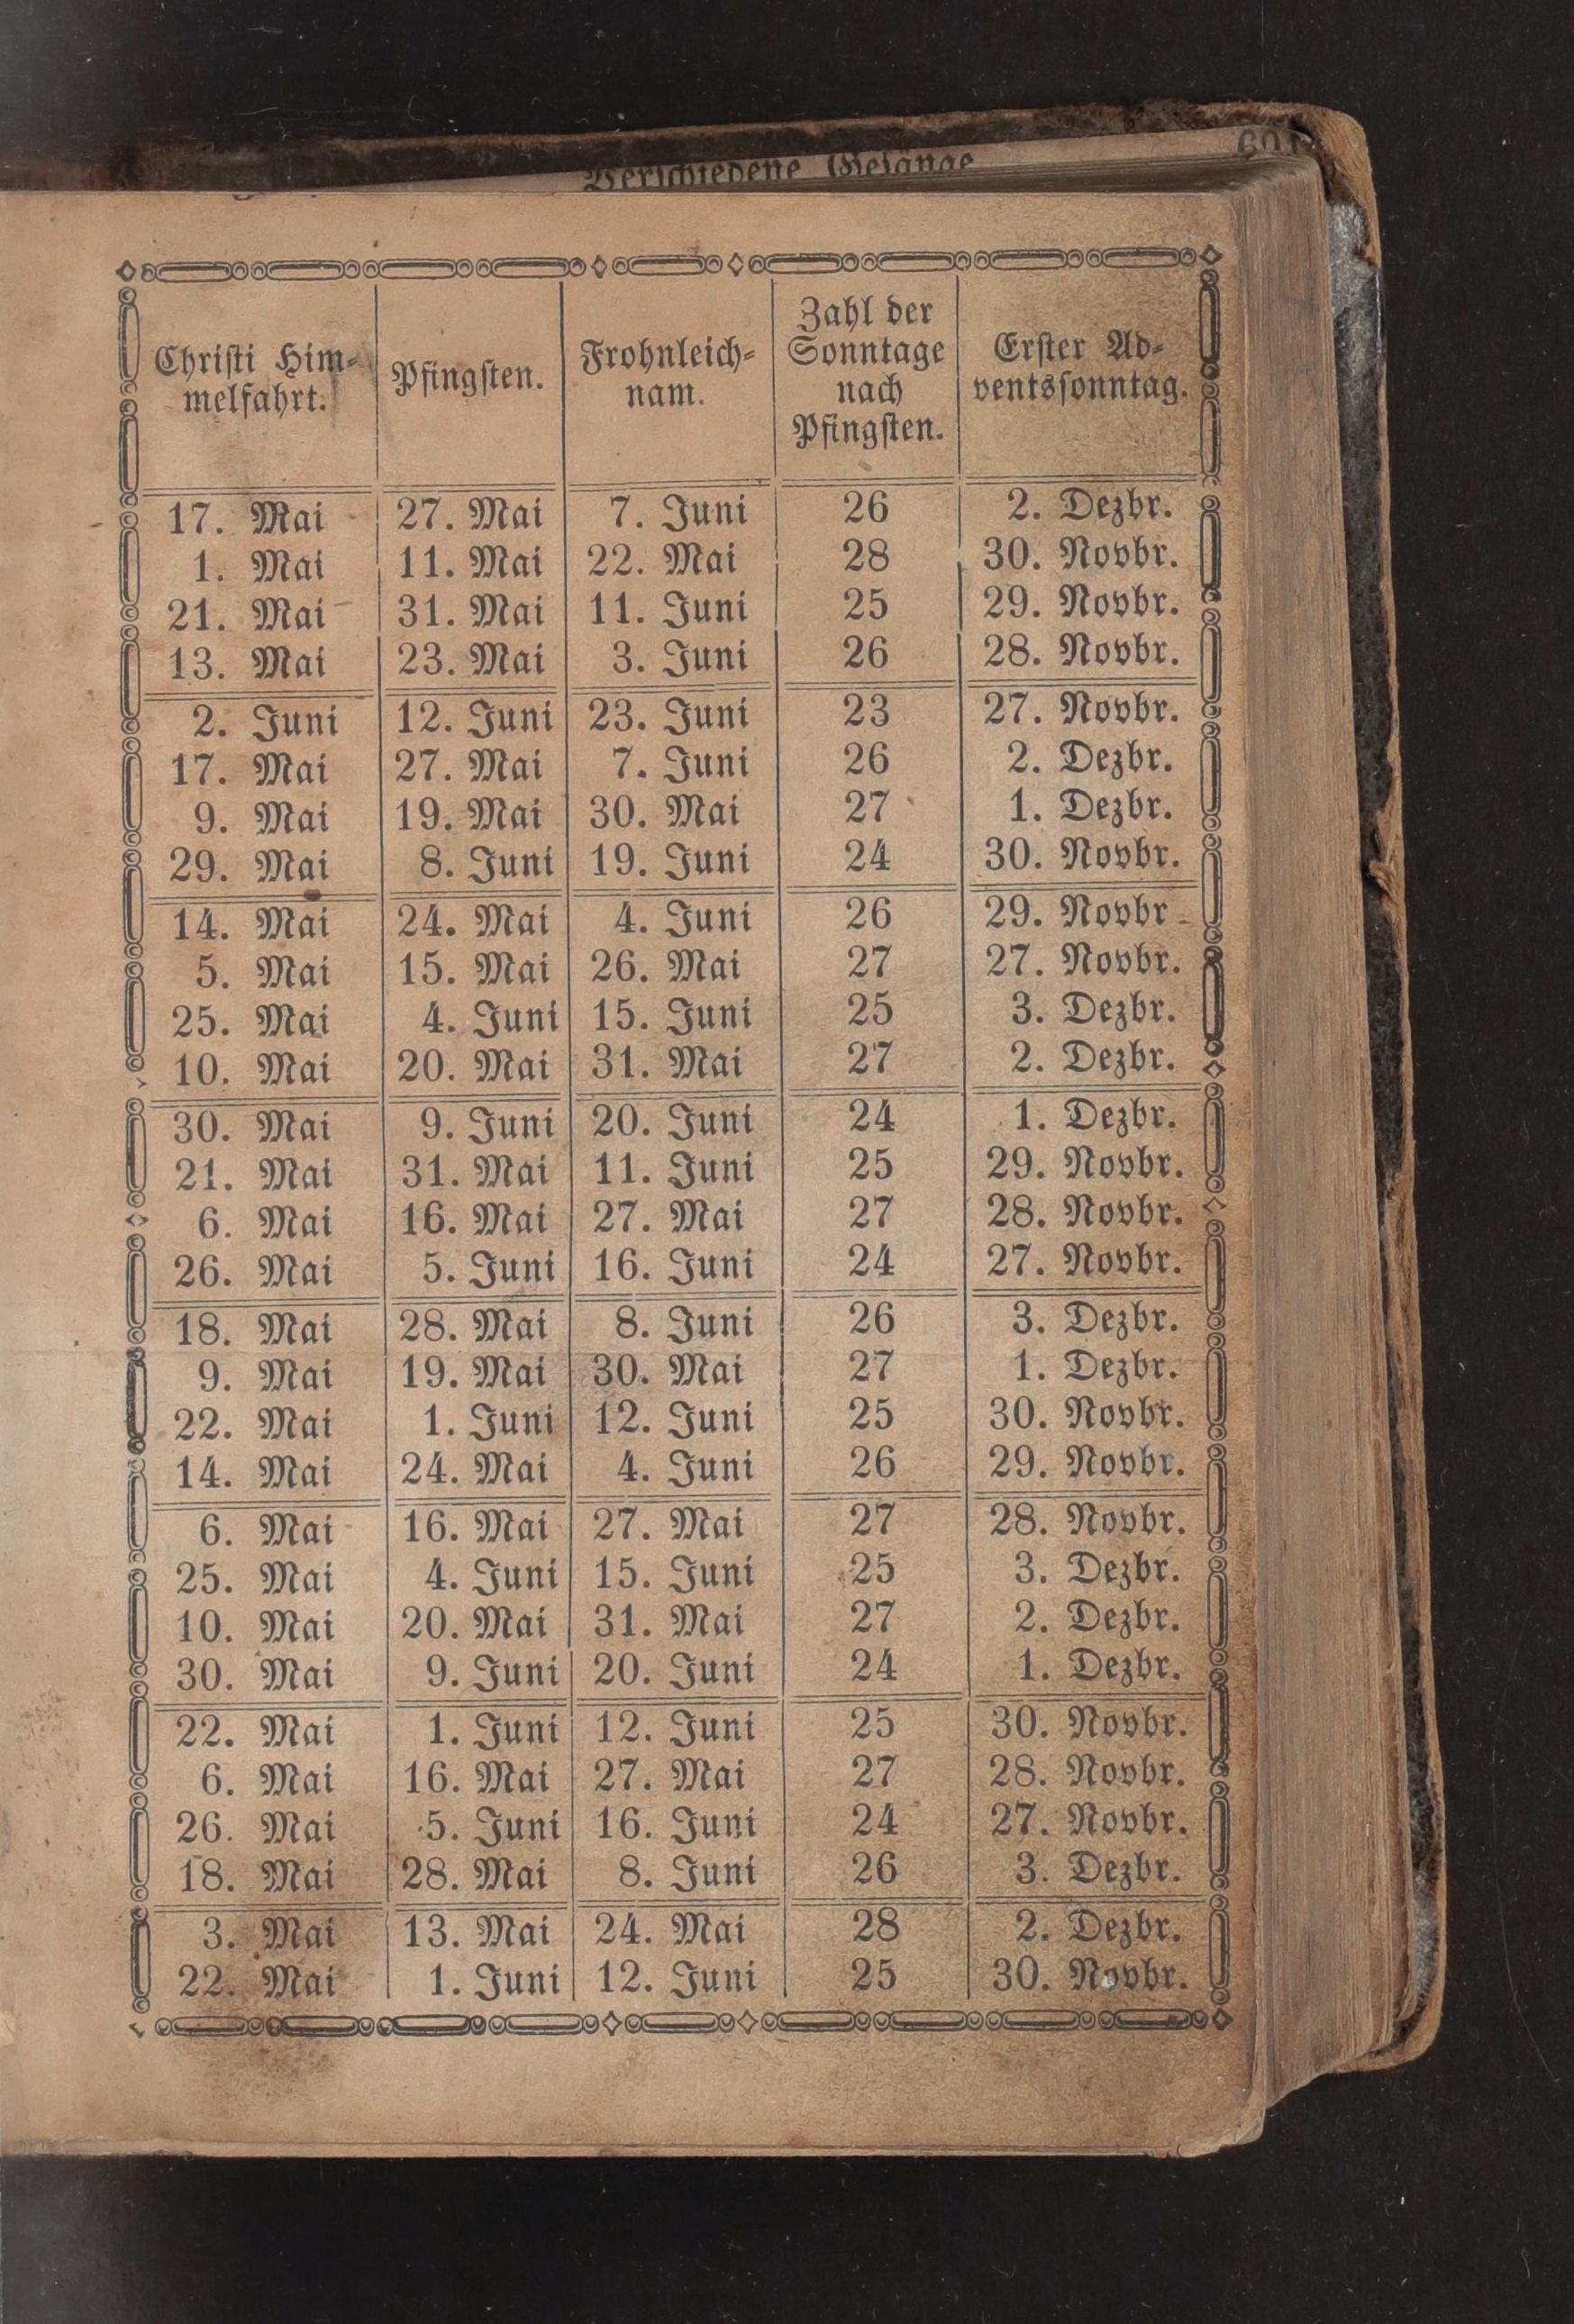 Verschiedene Gesänge
691
Christi Him-
melfahrt.
Pfingsten.
Frohnleich-
nam.
Zahl der
Sonntage
nach
Pfingsten.
Erster Ad-
ventssonntag.
17. Mai 27. Mai 7. Juni 26 2. Dezbr.
1. Mai 11. Mai 22. Mai 28 30. Novbr.
21. Mai 31. Mai 11. Juni 25 29. Novbr.
13. Mai 23. Mai 3. Juni 26 28. Novbr.
2. Juni 12. Juni 23. Juni 23 27. Novbr.
17. Mai 27. Mai 7. Juni 26 2. Dezbr.
9. Mai 19. Mai 30. Mai 27 1. Dezbr.
29. Mai 8. Juni 19. Juni 24 30. Novbr.
14. Mai 24. Mai 4. Juni 26 29. Novbr
5. Mai 15. Mai 26. Mai 27 27. Novbr.
25. Mai 4. Juni 15. Juni 25 3. Dezbr.
10. Mai 20. Mai 31. Mai 27 2. Dezbr.
30. Mai 9. Juni 20. Juni 24 1. Dezbr.
21. Mai 31. Mai 11. Juni 25 29. Novbr.
6. Mai 16. Mai 27. Mai 27 28. Novbr.
26. Mai 5. Juni 16. Juni 24 27. Novbr.
18. Mai 28. Mai 8. Juni 26 3. Dezbr.
9. Mai 19. Mai 30. Mai 27 1. Dezbr.
22. Mai 1. Juni 12. Juni 25 30. Novbr.
14. Mai 24. Mai 4. Juni 26 29. Novbr.
6. Mai 16. Mai 27. Mai 27 28. Novbr.
25. Mai 4. Juni 15. Juni 25 3. Dezbr.
10. Mai 20. Mai 31. Mai 27 2. Dezbr.
30. Mai 9. Juni 20. Juni 24 1. Dezbr.
22. Mai 1. Juni 12. Juni 25 30. Novbr.
6. Mai 16. Mai 27. Mai 27 28. Novbr.
26. Mai 5. Juni 16. Juni 24 27. Novbr.
18. Mai 28. Mai 8. Juni 26 3. Dezbr.
3. Mai 13. Mai 24. Mai 28 2. Dezbr.
22. Mai 1. Juni 12. Juni 25 30. Novbr.